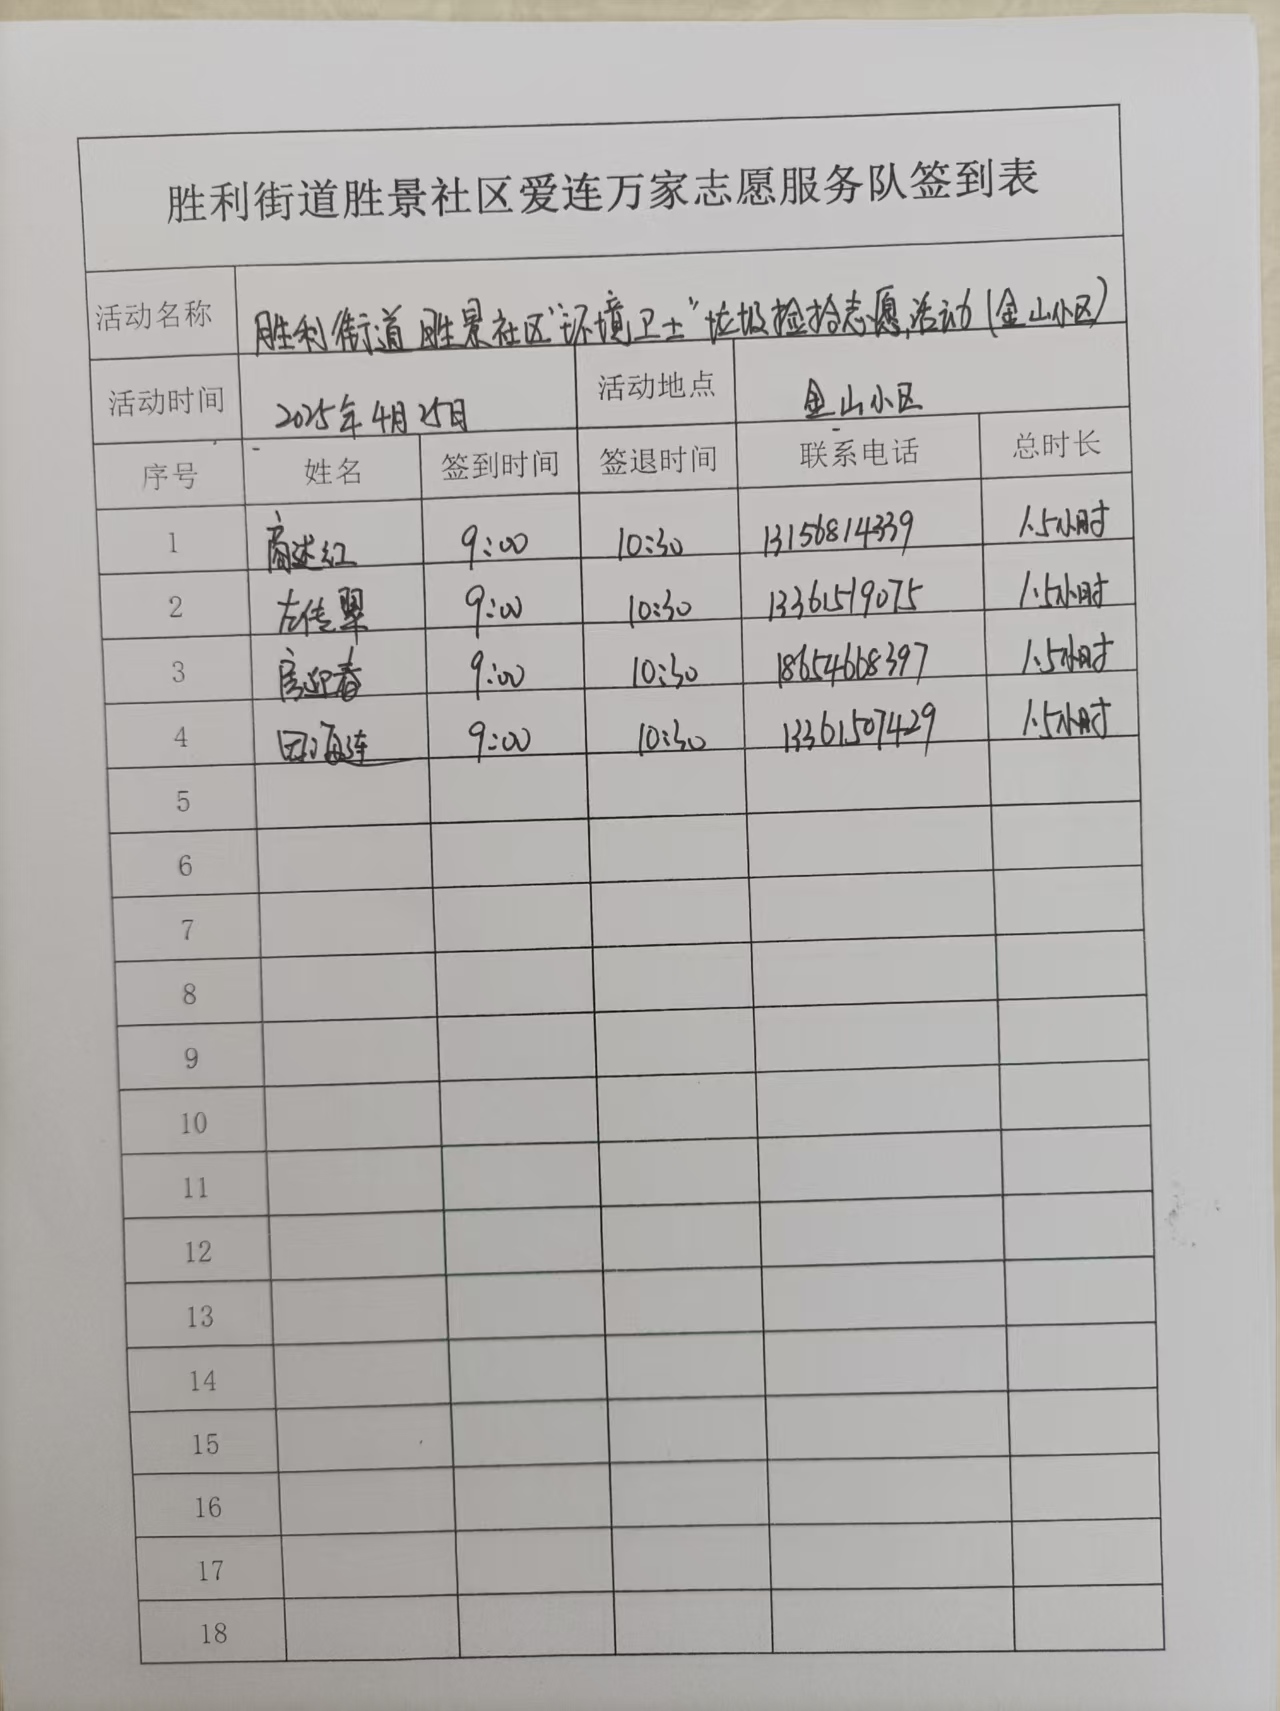 胜利街道胜景社区爱连万家志愿服务队签到表
活动名称 胜利街道胜景社区"环境卫士"垃圾捡拾志愿活动(金山小区)
活动时间 2025年4月25日 活动地点 金山小区
序号 姓名 签到时间 签退时间 联系电话 总时长
1 商述红 9:00 10:30 13156814339 1.5小时
2 左传翠 9:00 10:30 13361519075 1.5小时
3 房迎春 9:00 10:30 18654668397 1.5小时
4 田海连 9:00 10:30 13361507429 1.5小时
5
6
7
8
9
10
11
12
13
14
15
16
17
18